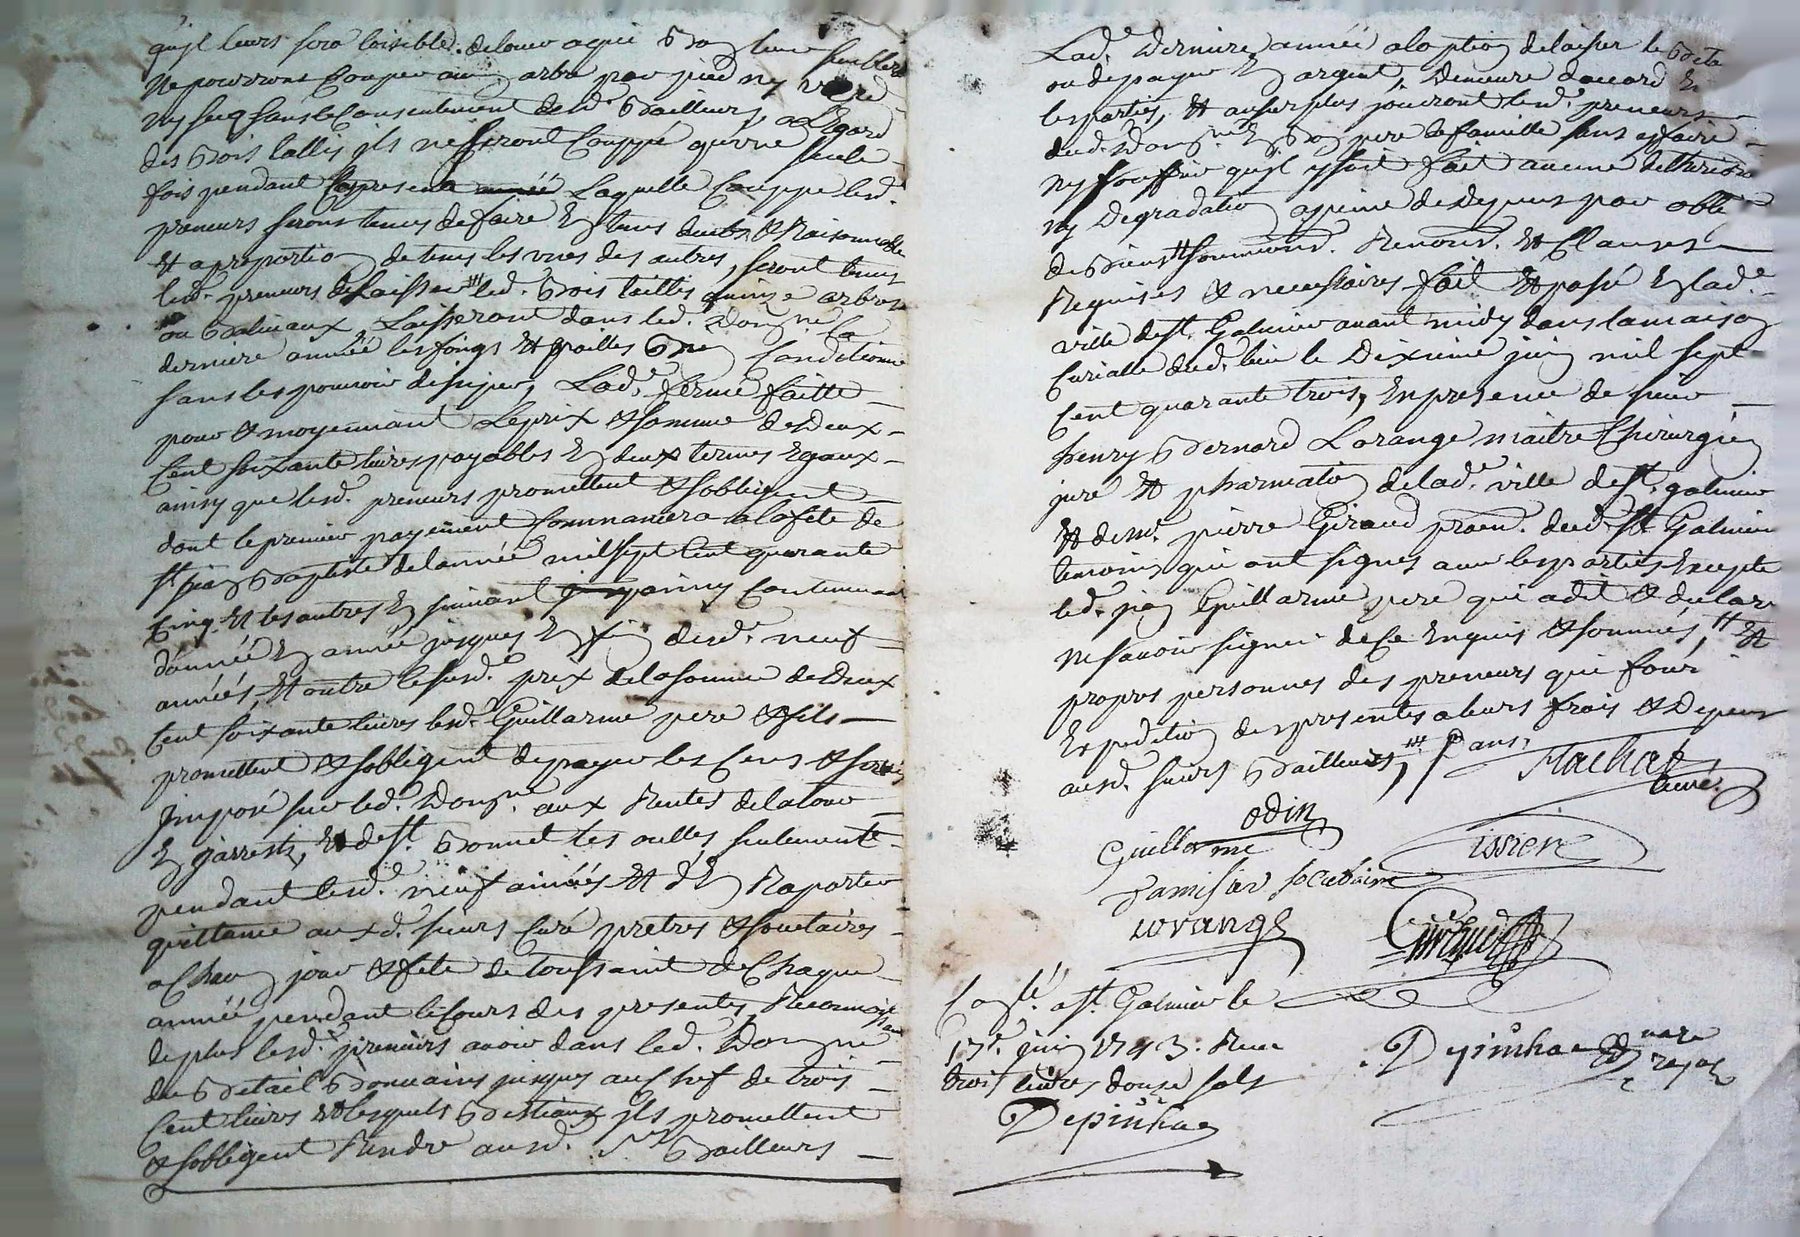 qu'il leurs sera loisible. de louer a qui bon leur semblera
ne pourrons Couper aucun arbre par pied ny verd
ny secq sans le Consentement desd. Bailleurs, a L'Egard
des Bois taillis ils ne feront Couppé qu'une seule
fois pendant Laquelle Couppe lesd.
preneurs seront tenus de faire En tems dueubs & Raisonnable
Et a proportion de tems les unes des autres, seront tenus
lesd. preneurs de Laisser led. Bois taillis quinze arbres
ou Baliveaux, Laisseront dans led. Domne la
derniere année les foings Et pailles Bien Conditionné
sans les pouvoir divertir, Lad. ferme faitte
pour & moyennant Le prix & somme de Deux
Cent soixante livres payables En deux termes Egaux
ainsy que lesd. preneurs promettent & sobligent
dont le premier payement Commancera a la fete de
st jean Baptiste de lannée mil sept Cent quarante
Cinq Et les autres En suivant ainsy Continuant
dannée En année jusques En fin desd. neuf
années, Et outre le susd. prix de la somme de Deux
Cent soixante livres lesd. Guillarme pere & fils
promettent & sobligent de payer les Cens & servis
jmposé sur led. Domne. aux Rentes de la tour
En jarrests, Et de st. Bonnet les oulles seulement
pendant lesd. neuf années Et d'En Raporter
quittance auxd. sieurs Curé pretres & societaires
a Chacun jour & fete de toussaint de Chaque
année pendant le Cours des presentes, Reconnoissant
de plus lesd. preneurs avoir dans led. Domne
du Betail Bouvains jusques au Chef de trois
Cent livres & lesquels Bestiaux ils promettent
& sobligent Rendre ausd. Srs Bailleurs
Lad. Derniere année a loption de laisser le Betail
ou de payer En argent, Demeure daccord En
les parties, Et au surplus joüiront lesd. preneurs
dud. Domne En Bon pere de famille sans y faire
ny souffrir qu'il y soit fait aucune deterioration
ny Degradation a peine de Depens par oblig
de Biens Soumission. Renond. Et Clauses
Requises & necessaires fait Et passé En lad.
ville de st. Galmier avant midy dans la maison
Curialle dud. lieu le Dixieme juin mil sept
Cent quarante trois, En presence de sieur
henry Bernard Lorange maitre Chirurgien
juré Et pharmatien de lad. ville de st. galmier
Et de mr. pierre Giraud praen. dud. st Galmier
temoins qui ont signes avec les parties Excepte
led. jean Guillarme pere qui a dit & declaré
ne savoir signer de Ce Enquis & sommés, Et
propres personnes des preneurs qui fourni
Expedition des presentes a leurs frais & Depens
ausd. sieurs Bailleurs,
Flachat
Curé
odin
Guillarme
issiere
Damisier societaire
Lorange
Con.lé a st. Galmier le
17e. juin 1743. Reçu
trois livres douze sols
Depinhac
Depinhac nore royal